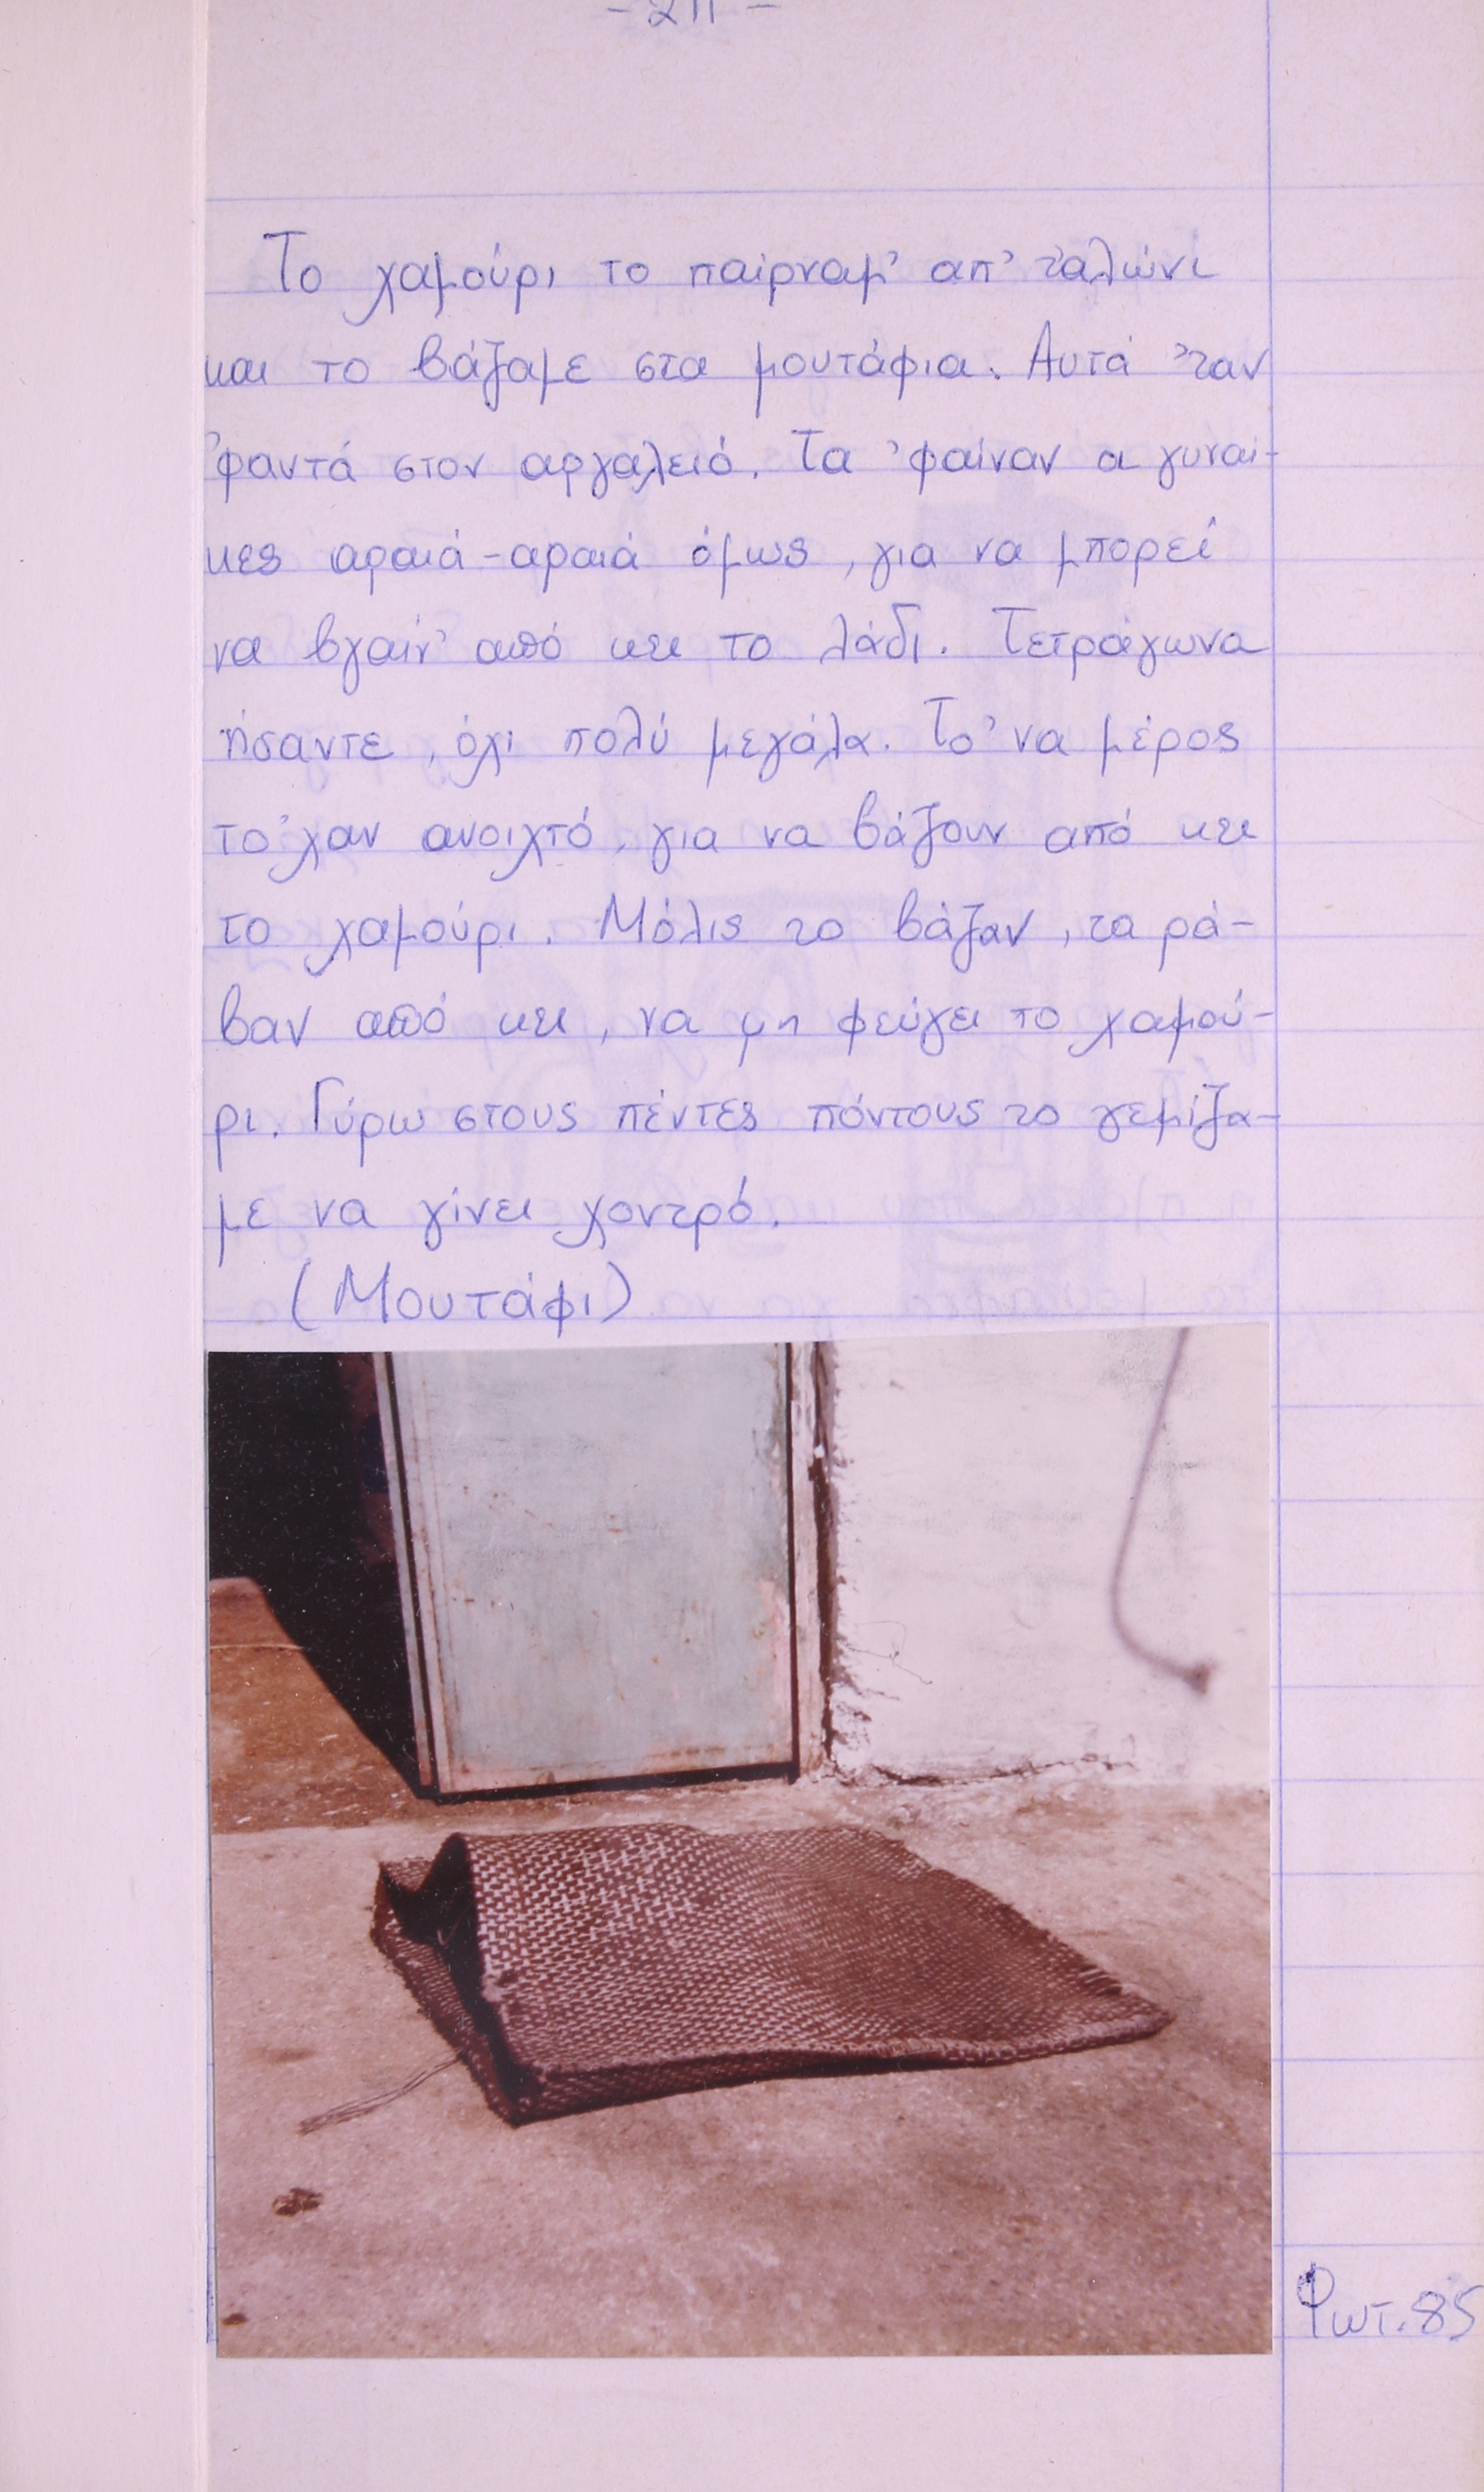 - 211 -
Το χαμούρι το παίρναμ' απ' τ'αλώνι
και το βάζαμε στα μουτάφια. Αυτά 'ταν
'φαντά στον αργαλειό. Τα 'φαίναν οι γυναί-
κες αραιά-αραιά όμως, για να μπορεί
να βγαίν' από κει το λάδι. Τετράγωνα
ήσαντε, όχι πολύ μεγάλα. Το 'να μέρος
το 'χαν ανοιχτό, για να βάζουν από κει
το χαμούρι. Μόλις το βάζαν, τα ρά-
βαν από κει, να μη φεύγει το χαμού-
ρι. Γύρω στους πέντες πόντους το γεμίζα-
με να γίνει χοντρό.
(Μουτάφι)
Φωτ. 85